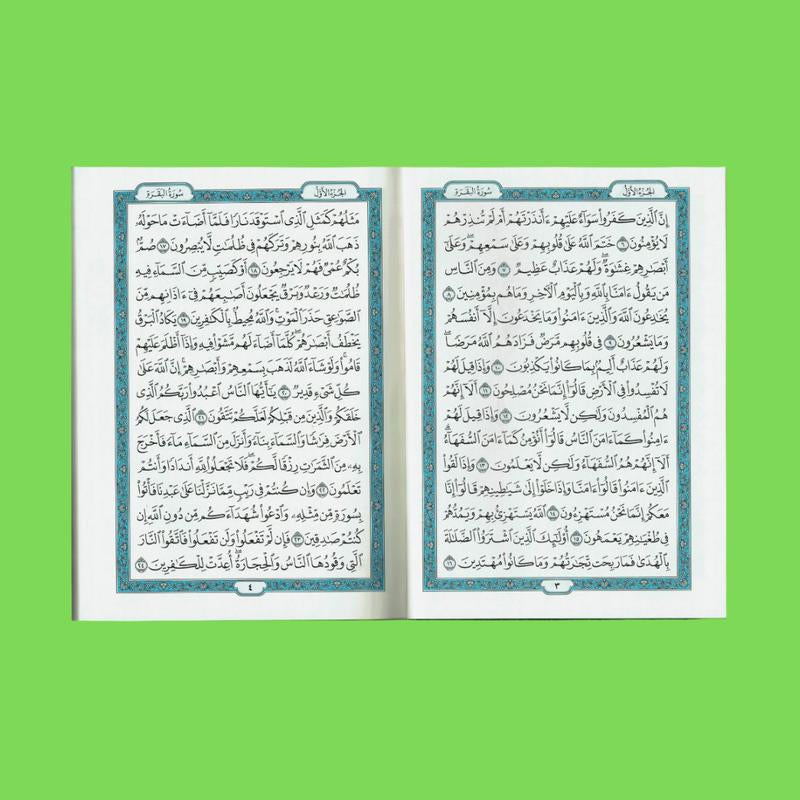 الجزء الأول
سورة البقرة
إِنَّ ٱلَّذِينَ كَفَرُوا۟ سَوَآءٌ عَلَيْهِمْ ءَأَنذَرْتَهُمْ أَمْ لَمْ تُنذِرْهُمْ
لَا يُؤْمِنُونَ ٦ خَتَمَ ٱللَّهُ عَلَىٰ قُلُوبِهِمْ وَعَلَىٰ سَمْعِهِمْ ۖ وَعَلَىٰٓ
أَبْصَـٰرِهِمْ غِشَـٰوَةٌ ۖ وَلَهُمْ عَذَابٌ عَظِيمٌ ٧ وَمِنَ ٱلنَّاسِ
مَن يَقُولُ ءَامَنَّا بِٱللَّهِ وَبِٱلْيَوْمِ ٱلْـَٔاخِرِ وَمَا هُم بِمُؤْمِنِينَ ٨
يُخَـٰدِعُونَ ٱللَّهَ وَٱلَّذِينَ ءَامَنُوا۟ وَمَا يَخْدَعُونَ إِلَّآ أَنفُسَهُمْ
وَمَا يَشْعُرُونَ ٩ فِى قُلُوبِهِم مَّرَضٌ فَزَادَهُمُ ٱللَّهُ مَرَضًا ۖ
وَلَهُمْ عَذَابٌ أَلِيمٌۢ بِمَا كَانُوا۟ يَكْذِبُونَ ١٠ وَإِذَا قِيلَ لَهُمْ
لَا تُفْسِدُوا۟ فِى ٱلْأَرْضِ قَالُوٓا۟ إِنَّمَا نَحْنُ مُصْلِحُونَ ١١ أَلَآ إِنَّهُمْ
هُمُ ٱلْمُفْسِدُونَ وَلَـٰكِن لَّا يَشْعُرُونَ ١٢ وَإِذَا قِيلَ لَهُمْ
ءَامِنُوا۟ كَمَآ ءَامَنَ ٱلنَّاسُ قَالُوٓا۟ أَنُؤْمِنُ كَمَآ ءَامَنَ ٱلسُّفَهَآءُ ۗ
أَلَآ إِنَّهُمْ هُمُ ٱلسُّفَهَآءُ وَلَـٰكِن لَّا يَعْلَمُونَ ١٣ وَإِذَا لَقُوا۟
ٱلَّذِينَ ءَامَنُوا۟ قَالُوٓا۟ ءَامَنَّا وَإِذَا خَلَوْا۟ إِلَىٰ شَيَـٰطِينِهِمْ قَالُوٓا۟ إِنَّا
مَعَكُمْ إِنَّمَا نَحْنُ مُسْتَهْزِءُونَ ١٤ ٱللَّهُ يَسْتَهْزِئُ بِهِمْ وَيَمُدُّهُمْ
فِى طُغْيَـٰنِهِمْ يَعْمَهُونَ ١٥ أُو۟لَـٰٓئِكَ ٱلَّذِينَ ٱشْتَرَوُا۟ ٱلضَّلَـٰلَةَ
بِٱلْهُدَىٰ فَمَا رَبِحَت تِّجَـٰرَتُهُمْ وَمَا كَانُوا۟ مُهْتَدِينَ ١٦
٣
الجزء الأول
سورة البقرة
مَثَلُهُمْ كَمَثَلِ ٱلَّذِى ٱسْتَوْقَدَ نَارًا فَلَمَّآ أَضَآءَتْ مَا حَوْلَهُۥ
ذَهَبَ ٱللَّهُ بِنُورِهِمْ وَتَرَكَهُمْ فِى ظُلُمَـٰتٍ لَّا يُبْصِرُونَ ١٧ صُمٌّۢ
بُكْمٌ عُمْىٌ فَهُمْ لَا يَرْجِعُونَ ١٨ أَوْ كَصَيِّبٍ مِّنَ ٱلسَّمَآءِ فِيهِ
ظُلُمَـٰتٌ وَرَعْدٌ وَبَرْقٌ يَجْعَلُونَ أَصَـٰبِعَهُمْ فِىٓ ءَاذَانِهِم مِّنَ
ٱلصَّوَٰعِقِ حَذَرَ ٱلْمَوْتِ ۚ وَٱللَّهُ مُحِيطٌۢ بِٱلْكَـٰفِرِينَ ١٩ يَكَادُ ٱلْبَرْقُ
يَخْطَفُ أَبْصَـٰرَهُمْ ۖ كُلَّمَآ أَضَآءَ لَهُم مَّشَوْا۟ فِيهِ وَإِذَآ أَظْلَمَ عَلَيْهِمْ
قَامُوا۟ ۚ وَلَوْ شَآءَ ٱللَّهُ لَذَهَبَ بِسَمْعِهِمْ وَأَبْصَـٰرِهِمْ ۚ إِنَّ ٱللَّهَ عَلَىٰ
كُلِّ شَىْءٍ قَدِيرٌ ٢٠ يَـٰٓأَيُّهَا ٱلنَّاسُ ٱعْبُدُوا۟ رَبَّكُمُ ٱلَّذِى
خَلَقَكُمْ وَٱلَّذِينَ مِن قَبْلِكُمْ لَعَلَّكُمْ تَتَّقُونَ ٢١ ٱلَّذِى جَعَلَ لَكُمُ
ٱلْأَرْضَ فِرَٰشًا وَٱلسَّمَآءَ بِنَآءً وَأَنزَلَ مِنَ ٱلسَّمَآءِ مَآءً فَأَخْرَجَ
بِهِۦ مِنَ ٱلثَّمَرَٰتِ رِزْقًا لَّكُمْ ۖ فَلَا تَجْعَلُوا۟ لِلَّهِ أَندَادًا وَأَنتُمْ
تَعْلَمُونَ ٢٢ وَإِن كُنتُمْ فِى رَيْبٍ مِّمَّا نَزَّلْنَا عَلَىٰ عَبْدِنَا فَأْتُوا۟
بِسُورَةٍ مِّن مِّثْلِهِۦ وَٱدْعُوا۟ شُهَدَآءَكُم مِّن دُونِ ٱللَّهِ إِن
كُنتُمْ صَـٰدِقِينَ ٢٣ فَإِن لَّمْ تَفْعَلُوا۟ وَلَن تَفْعَلُوا۟ فَٱتَّقُوا۟ ٱلنَّارَ
ٱلَّتِى وَقُودُهَا ٱلنَّاسُ وَٱلْحِجَارَةُ ۖ أُعِدَّتْ لِلْكَـٰفِرِينَ ٢٤
٤